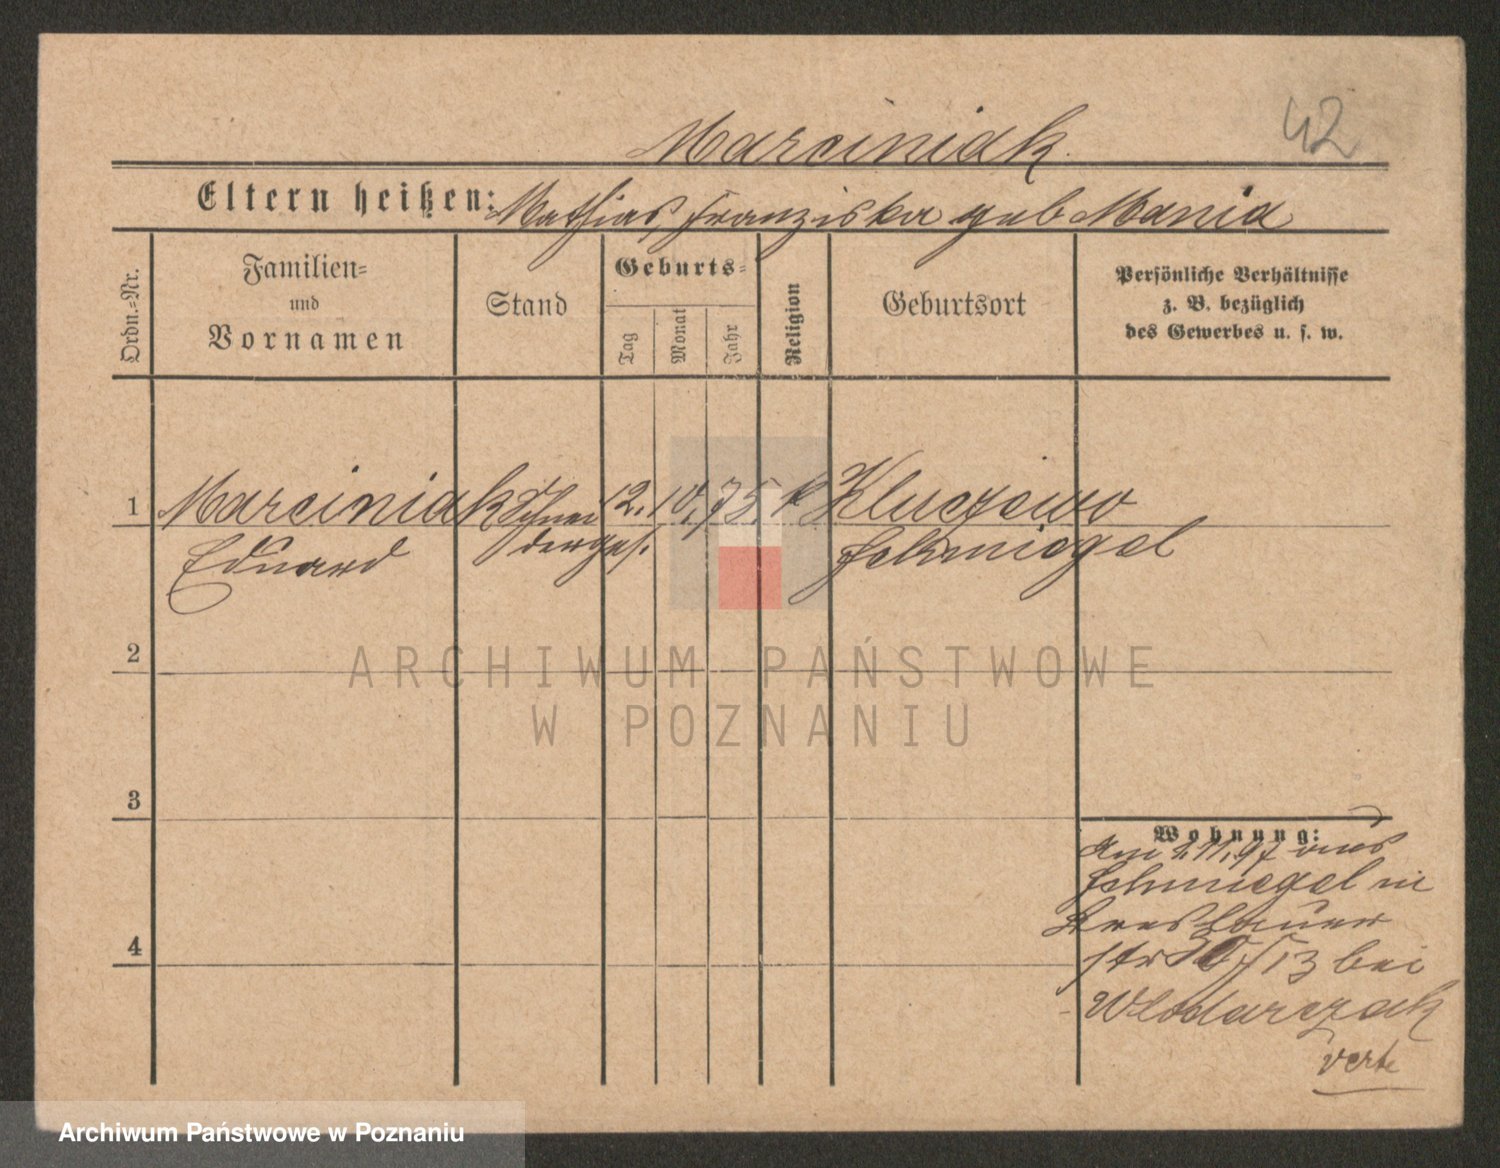 42
Marciniak.
Eltern heißen: Mathias, Franziska geb Mania
Ordn.-Nr.
Familien-
und
Vornamen
Stand
Geburts-
Tag
Monat
Jahr
Religion
Geburtsort
Persönliche Verhältnisse
z. B. bezüglich
des Gewerbes u. s. w.
1 Marciniak Schnei 12. 10. 75. k Kluczewo
Eduard derges. Schmiegel
2
ARCHIWUM PAŃSTWOWE
W POZNANIU
3
Wohnung:
Am 2.11.97 aus
Schmiegel in
Breslauer
str 13 bei
Wlodarczak
verte
4
Archiwum Państwowe w Poznaniu